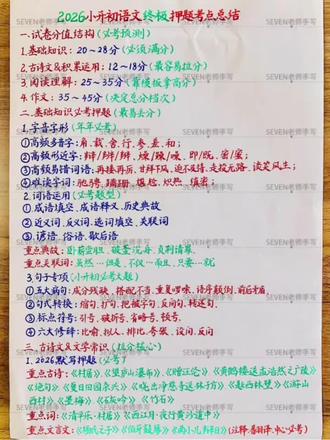 2026小升初语文终极押题考点总结
一.试卷分值结构(必考预测)
1.基础知识：20-28分(必须满分)
2.古诗文及积累运用：12-18分(最易易拉分)
3.阅读理解：25-35分(最模板拿高分)
4.作文：35-45分(决定总分档次)
二.基础知识必考押题(最易丢分)
1.字音字形(年年必考)
①高频多音字：
②高频形近字：辩/辨/辫,燥/躁/噪,即/既,
③高频易错词语：再接再厉,甘拜下风,迫不及待,走投无路,谈笑风生;
④
2.词语运用(必考题型)
①成语填空,成语释义,历史典故
②近义词,反义词,选词填空,关联词
③谚语,俗语,歇后语
重点典故：卧薪尝胆,破釜沉舟,负荆请罪,
重点关联词：虽然…但是,不仅…而且,只要…就
3.句子专项(小升初必考大题)
①五大病句：成分残缺,搭配不当,重复啰嗦,语序颠倒,前后矛盾,
②句式转换：缩句,扩句,把被字句,反问句,转述句,
③标点符号：引号,破折号,省略号,顿号,
④六大修辞：比喻,拟人,排比,夸张,设问,反问
三.古诗文及文学常识(拉分核心)
1.2026默写押题(必考)
重点古诗：《村居》,《黄鹤楼送孟浩然之广陵》
《绝句》《夏日田园杂兴》《晓出净慈寺送林子方》《题西林壁》《游山西村》《墨梅》《石灰吟》《竹石》
重点词：《清平乐·村居》《西江月·夜行黄沙道中》
重点文言：《伯牙鼓琴》《两小儿辩日》
SEVEN老师手写